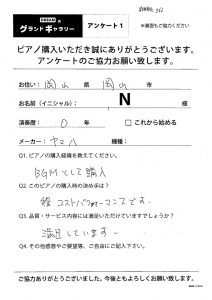 グランドギャラリー アンケート1 ※裏面もご協力ください
ピアノ購入いただき誠にありがとうございます。
アンケートのご協力お願い致します。
お住い: 岡山 県 岡山 市
お名前(イニシャル): N 様
演奏歴: 0 年 □ これから始める
メーカー: ヤマハ 機種:
Q1. ピアノの購入経緯を教えてください。
BGMとして購入
Q2. このピアノの購入時の決め手は?
コストパフォーマンスです.
Q3. 品質・サービス内容には満足いただけていますでしょうか?
満足しています
Q4. その他感想やご要望等、ご自由にご記入下さい。
ご協力ありがとうございました。今後ともよろしくお願い致します。